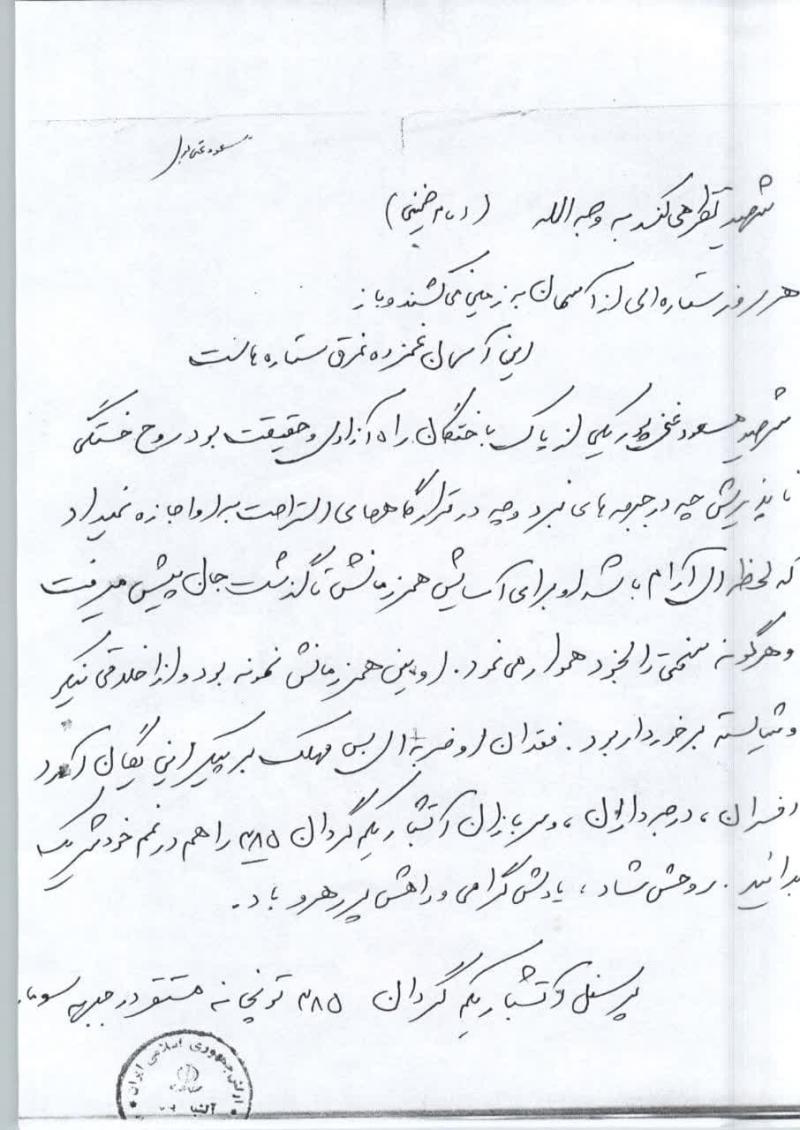 شهید نظر می کند به وجه الله (امام خمینی)
هر روز ستاره ای از آسمان به زمین می کشند و باز
این آسمان غمزده غرق ستاره هاست
شهید مسعود یکی از پاک باختگان راه آزادی و حقیقت بود روح خستگی
ناپذیرش چه در جبهه های نبرد و چه در قرارگاههای استراحت به او اجازه نمیداد
که لحظه ای آرام باشد او برای آسایش همرزمانش تا گذشت جان پیش میرفت
و هرگونه سختی را بخود هموار می نمود. او بین همرزمانش نمونه بود و از اخلاقی نیک
و شایسته برخوردار بود. فقدان او ضربه ای بس مهلک بر پیکر این یگان آورد
افسران، درجه داران، و سربازان آتشبار یکم گردان ۳۸۵ را هم در غم خود شریک
بدانید. روحش شاد، یادش گرامی و راهش پر رهرو باد.
پرسنل آتشبار یکم گردان ۳۸۵ توپخانه مستقر در جبهه سومار
ارتش جمهوری اسلامی ایران